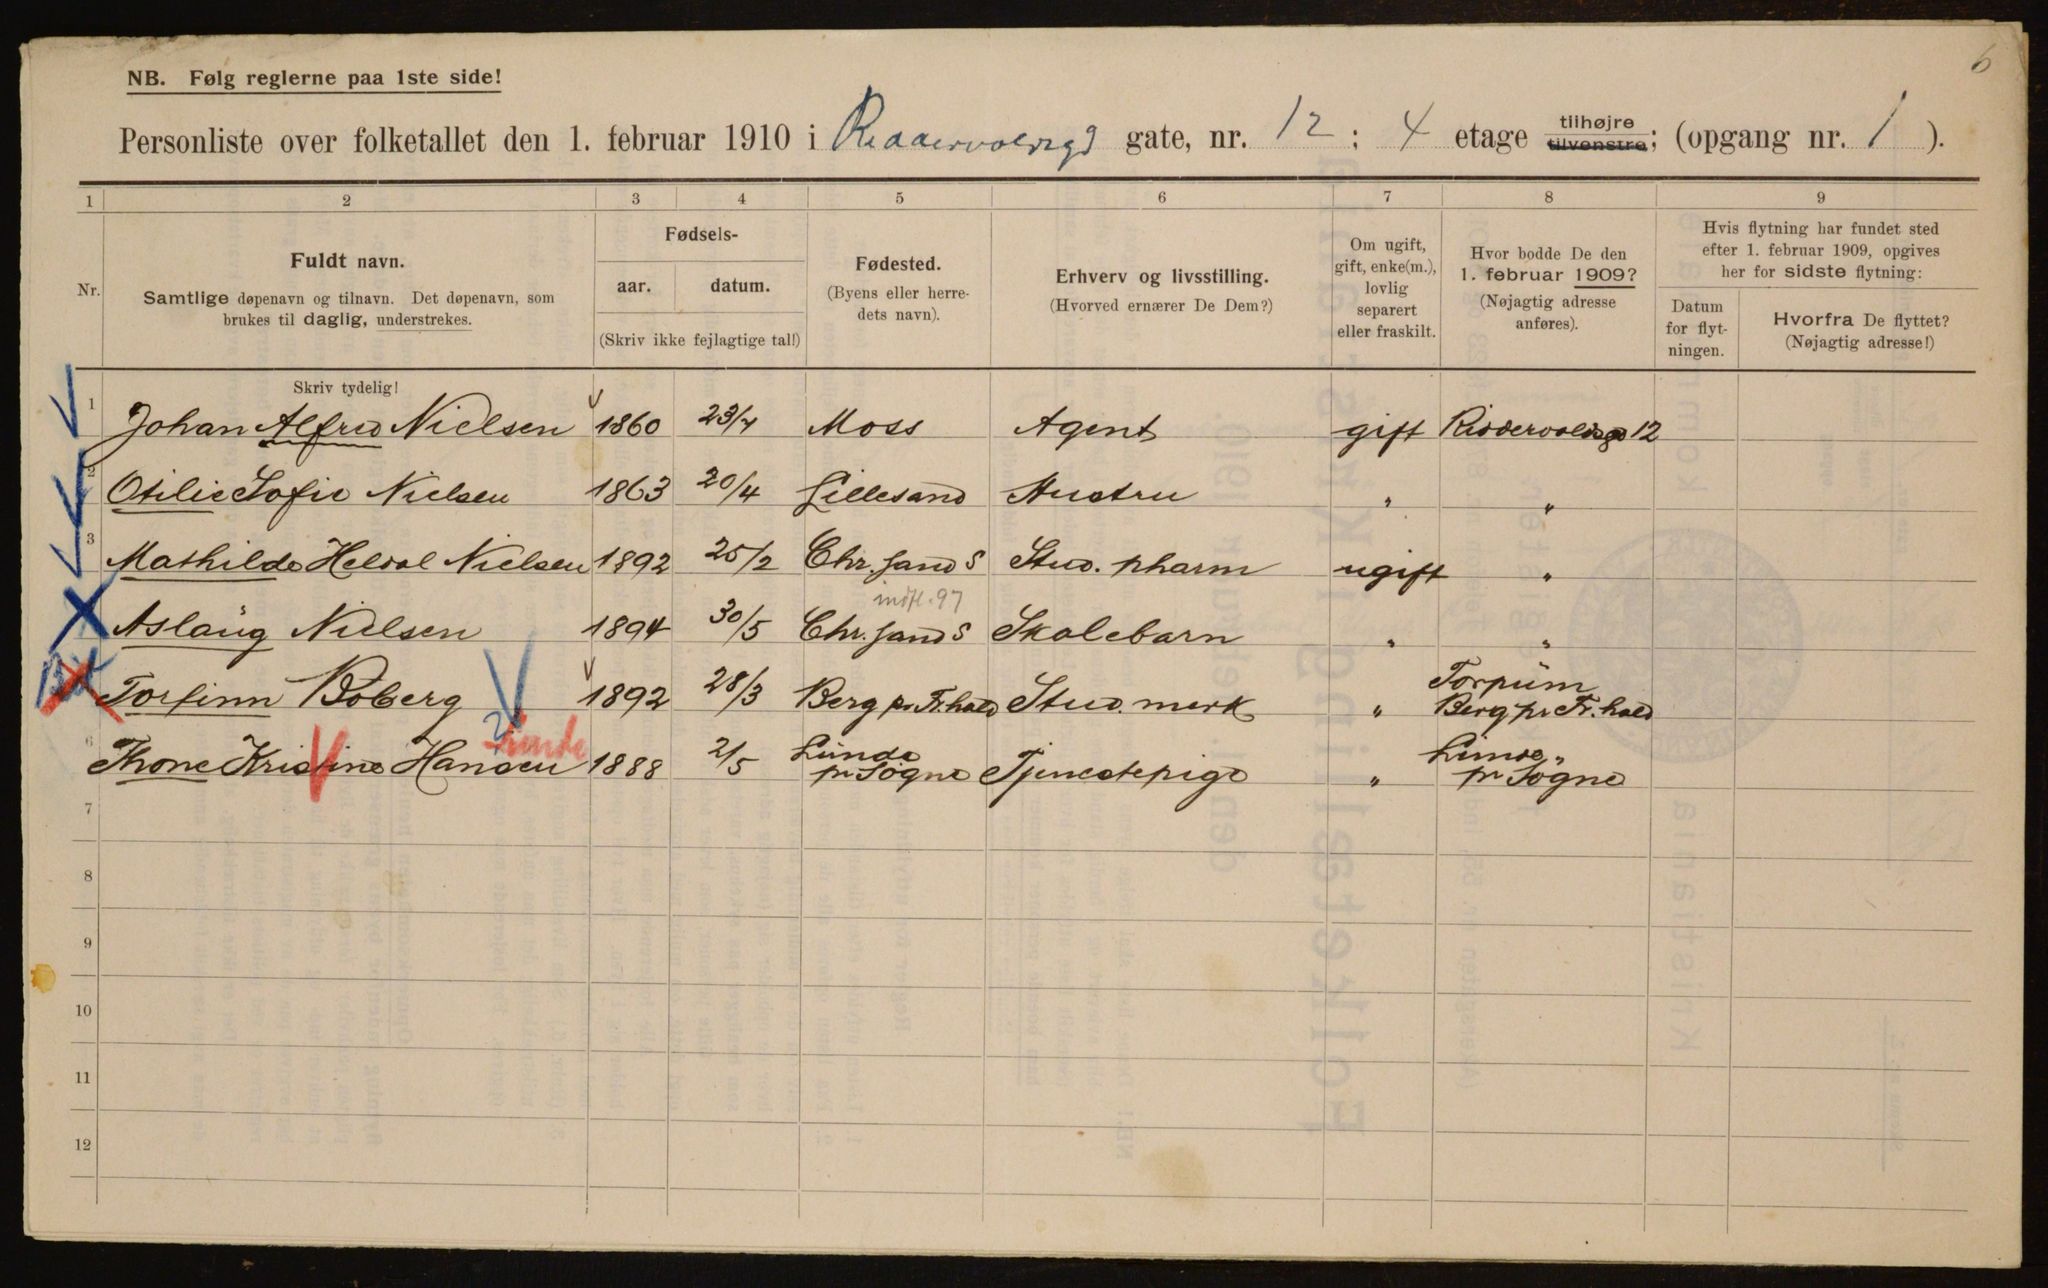 6
NB. Følg reglerne paa 1ste side!
Personliste over folketallet den 1. februar 1910 i Riddervoldsgd gate, nr. 12 ; 4 etage tilhøjre tilvenstre; (opgang nr. 1 ).
1 2 3 4 5 6 7 8 9
Nr.
Fuldt navn.
Samtlige døpenavn og tilnavn. Det døpenavn, som
brukes til daglig, understrekes.
Fødsels-
aar. datum.
(Skriv ikke fejlagtige tal!)
Fødested.
(Byens eller herre-
dets navn).
Erhverv og livsstilling.
(Hvorved ernærer De Dem?)
Om ugift,
gift, enke(m.),
lovlig
separert
eller fraskilt.
Hvor bodde De den
1. februar 1909?
(Nøjagtig adresse
anføres).
Hvis flytning har fundet sted
efter 1. februar 1909, opgives
her for sidste flytning:
Datum
for flyt-
ningen.
Hvorfra De flyttet?
(Nøjagtig adresse!)
Skriv tydelig!
1 Johan Alfred Nielsen 1860 23/4 Moss Agent gift Riddervoldsgd 12
2 Otilie Sofie Nielsen 1863 20/4 Lillesand Hustru " "
3 Mathilde Helval Nielsen 1892 25/2 Chr.sand S Stud. pharm ugift "
indfl. 97
Aslaüg Nielsen 1894 30/5 Chr.sand S Skolebarn " "
Torfinn Boberg 1892 28/3 Berg pr Fr.hald Stud. merk " Torpüm
Berg pr Fr. hald
Lunde
6 Thone Kristine Hansen 1888 2/5 Lünde
pr Søgne Tjenestepige " Lunde
pr Søgne
7
8
9
10
11
12